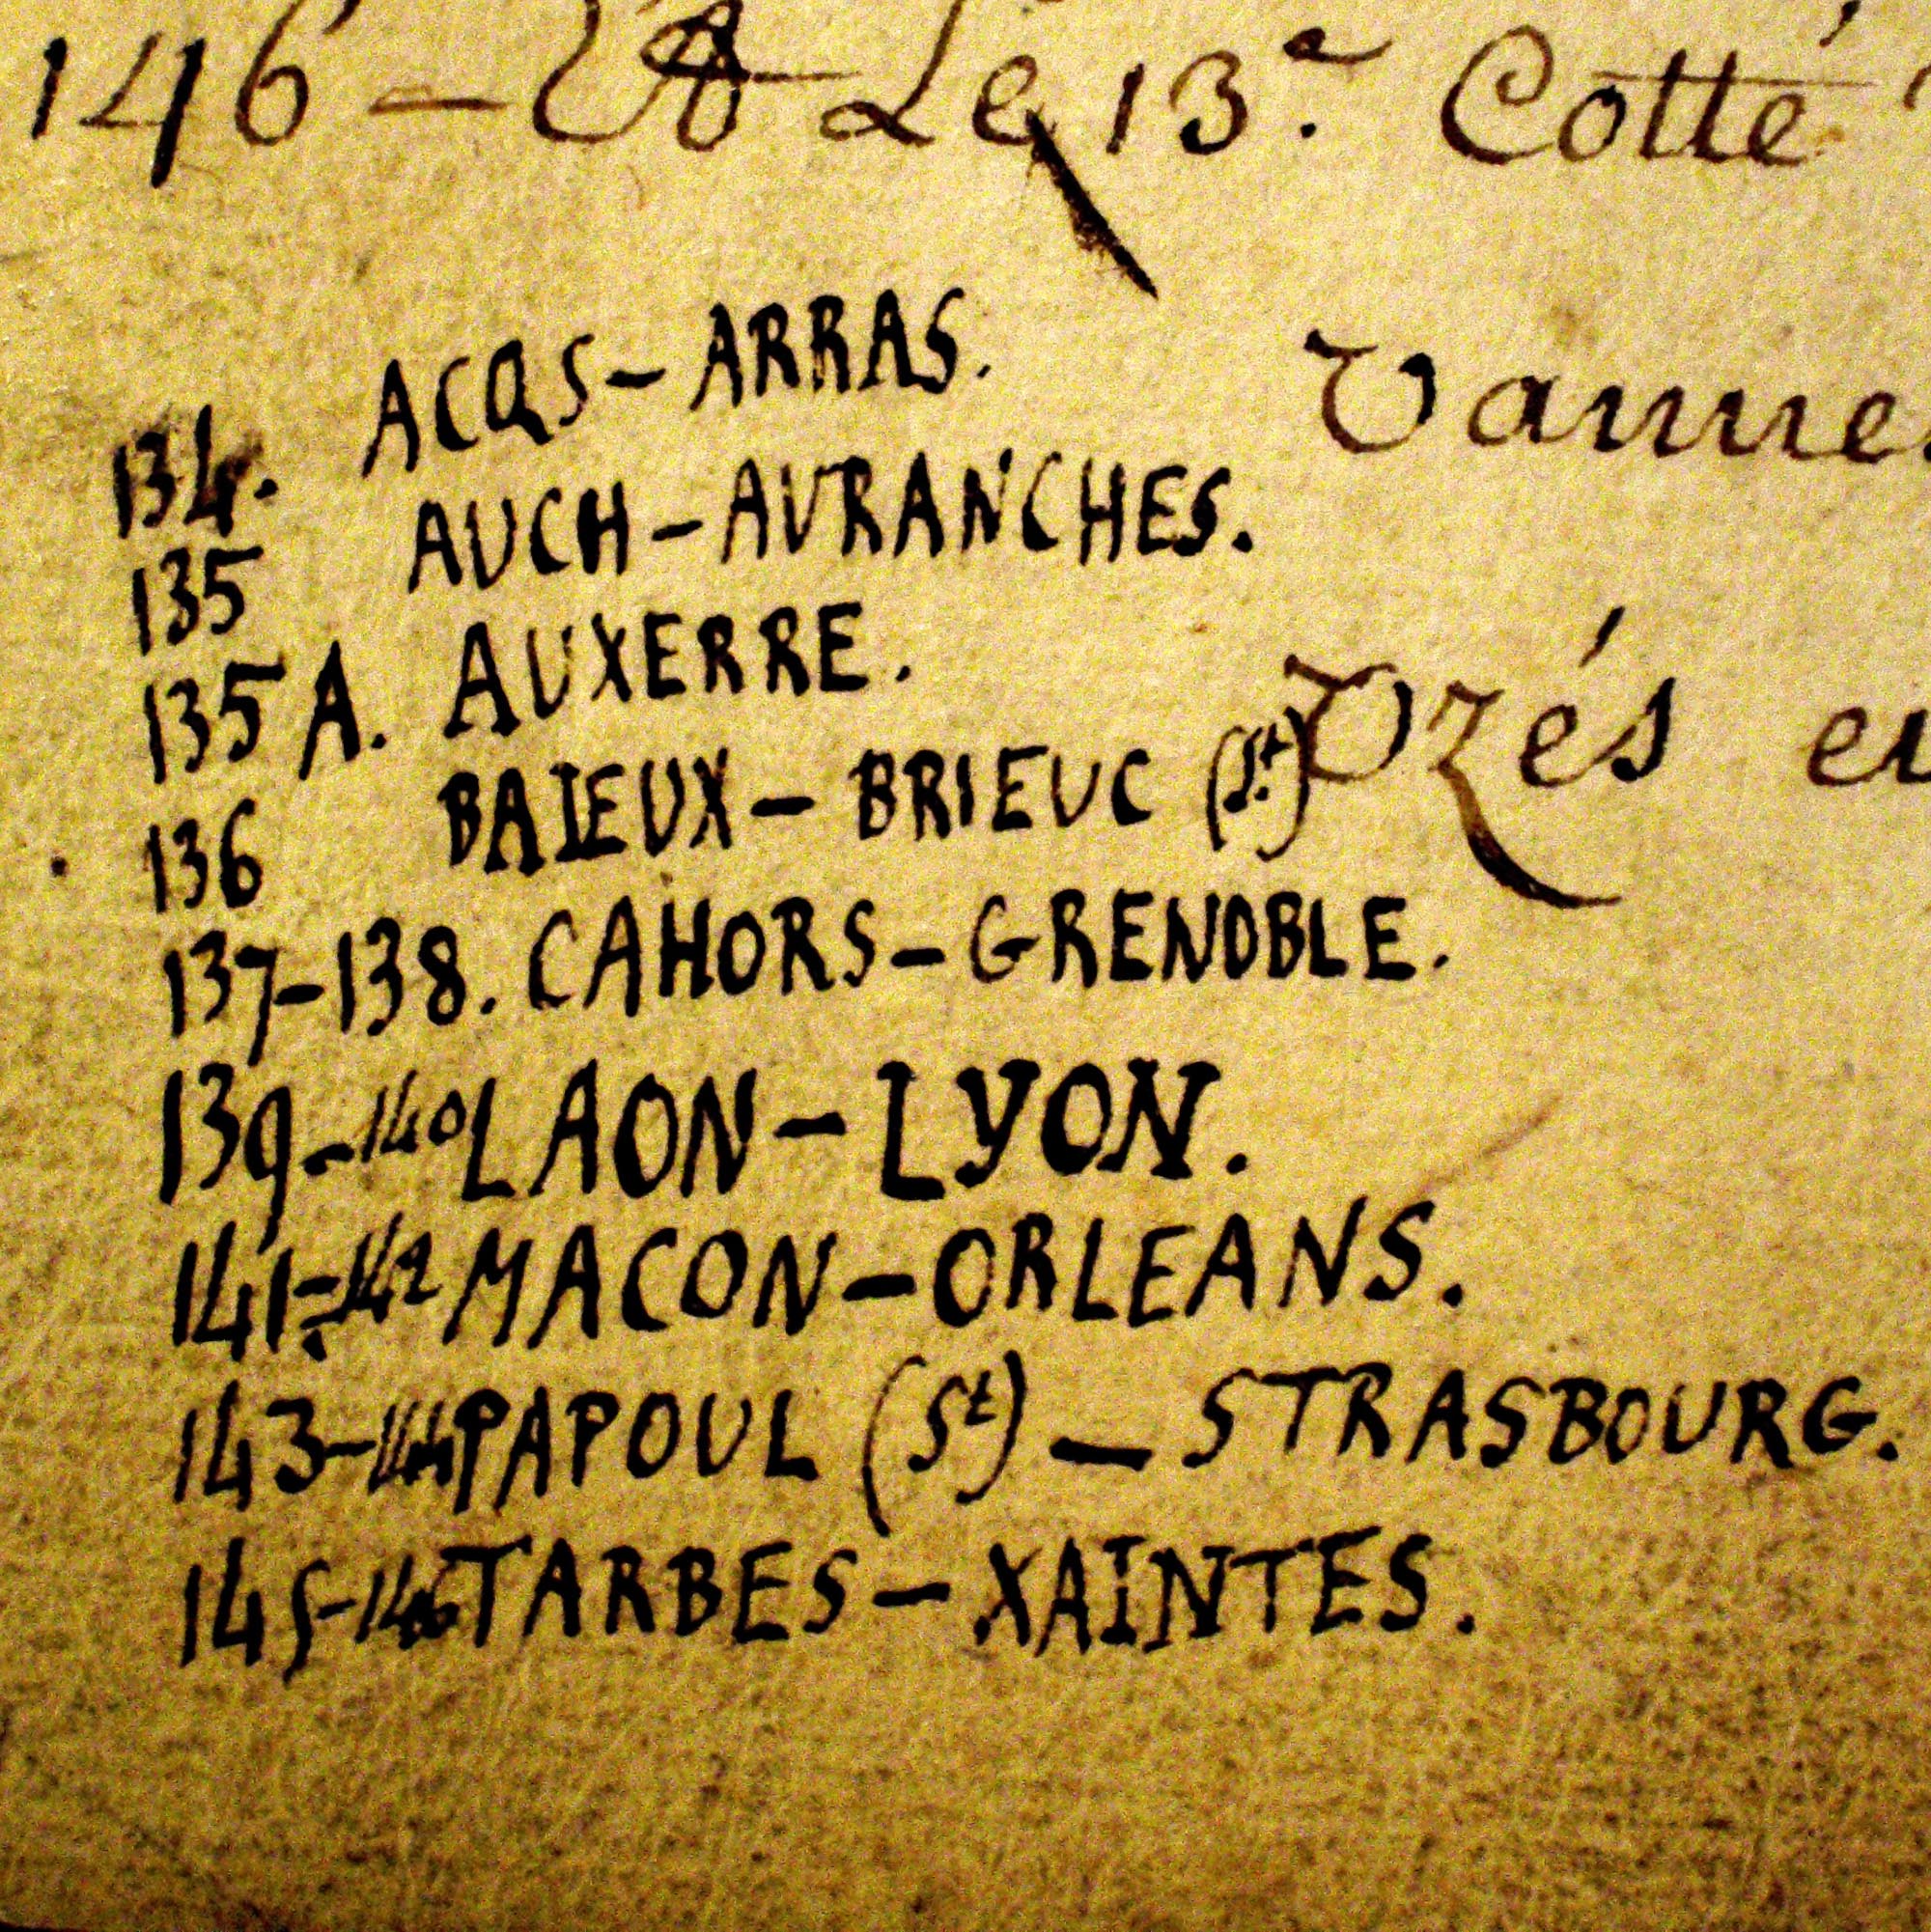 146 — Le 13.e Cotté
134. ACQS – ARRAS.
Vanne
135 AUCH – AVRANCHES.
135 A. AUXERRE.
Vzés
136 BAIEUX – BRIEUC (St)
137-138. CAHORS – GRENOBLE.
139-140 LAON – LYON.
141-142 MACON – ORLEANS.
143-144 PAPOUL (St) – STRASBOURG.
145-146 TARBES – XAINTES.